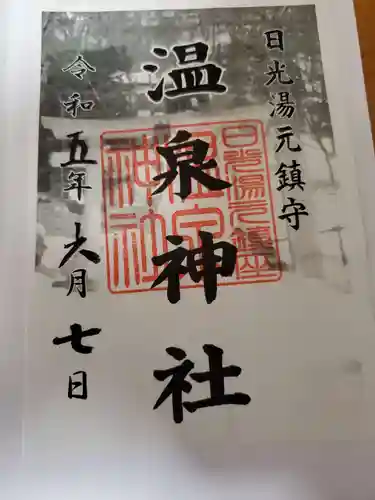 日光湯元鎮守
温泉神社
令和五年六月七日
日光湯元鎮座
温泉
神社